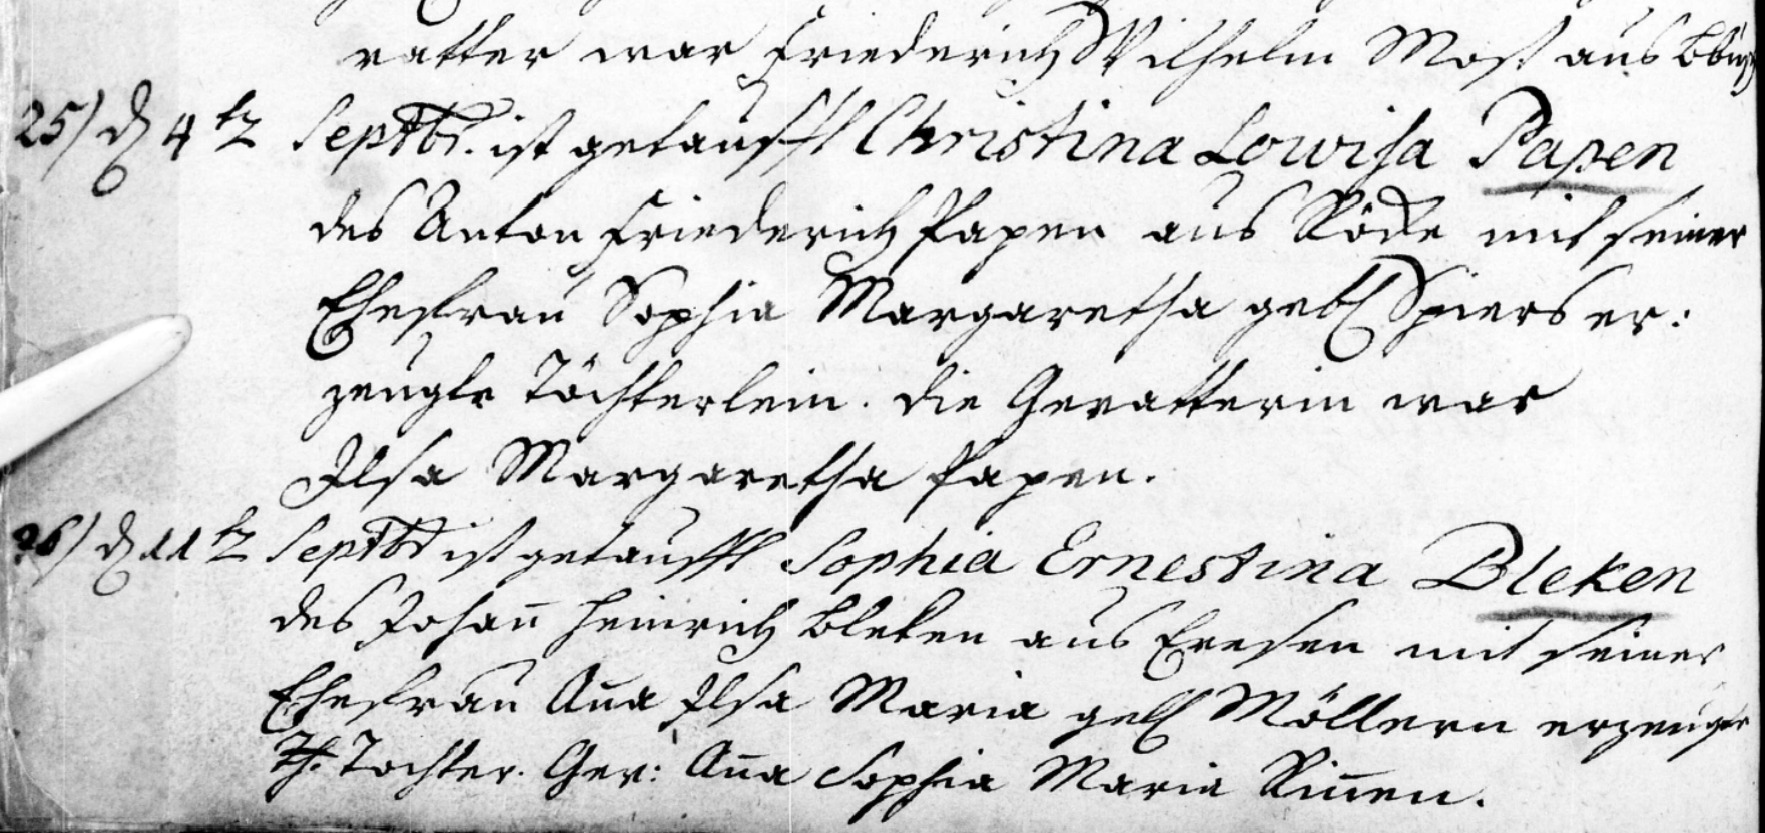 vatter war Friederich Wilhelm Most aus
25) d 4t Septbr. ist getaufft Christina Lowisa Papen
des Anton Friederich Papen aus Röde mit seiner
Ehefrau Sophia Margaretha geb Spiers er:
zeugte Töchterlein. die Gevatterin war
Ilsa Margaretha Papen.
26) d 11t Septbr ist getaufft Sophia Ernestina Bleken
des Johan̄ Heinrich Bleken aus Eresen mit seiner
Ehefrau An̄a Ilsa Maria geb Möllern erzeugte
Tochter. Gev: An̄a Sophia Maria Rin̄en.